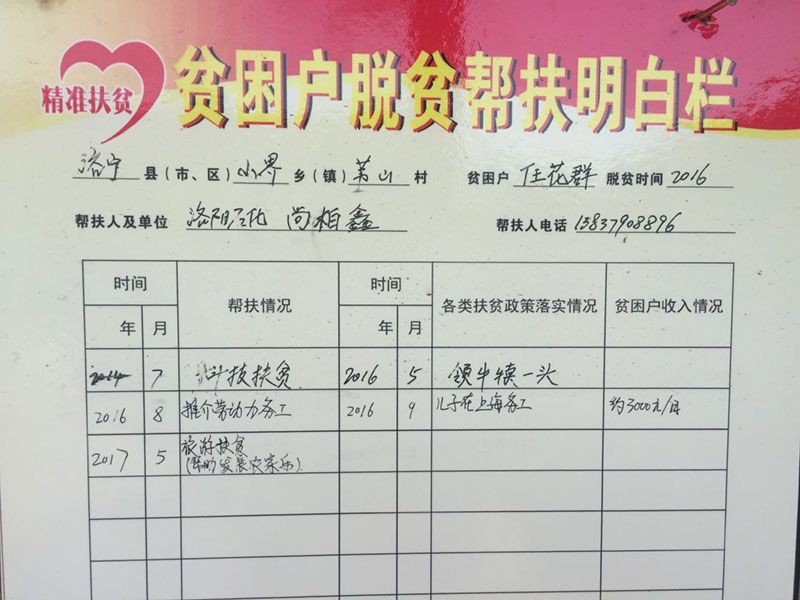 精准扶贫
贫困户脱贫帮扶明白栏
洛宁县(市、区)小界乡(镇)苇山村 贫困户任花群 脱贫时间2016
帮扶人及单位 洛阳石化 尚柏鑫 帮扶人电话13837908896
时间 帮扶情况 时间 各类扶贫政策落实情况 贫困户收入情况
年 月 年 月
7 科技扶贫 2016 5 领牛犊一头
2016 8 推介劳动力务工 2016 9 儿子在上海务工 约3000元/月
2017 5 旅游扶贫
(帮助发展农家乐)